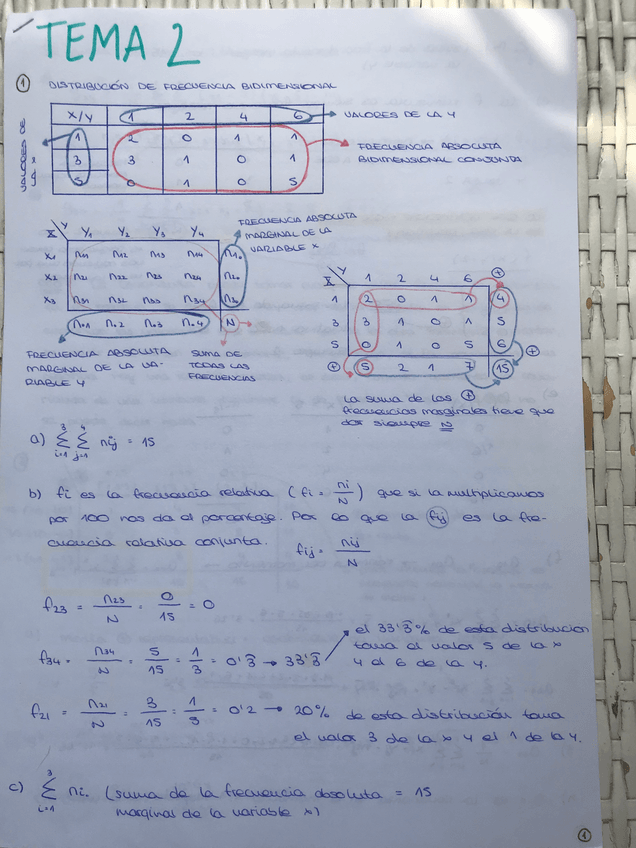 TEMA 2
① DISTRIBUCIÓN DE FRECUENCIA BIDIMENSIONAL
X/Y 1 2 4 6 → VALORES DE LA Y
VALORES DE
1 2 0 1 1
3 3 1 0 1
5 0 1 0 5
FRECUENCIA ABSOLUTA
BIDIMENSIONAL CONJUNTA
X Y Y₁ Y₂ Y₃ Y₄
X₁ n₁₁ n₁₂ n₁₃ n₁₄ n₁.
X₂ n₂₁ n₂₂ n₂₃ n₂₄ n₂.
X₃ n₃₁ n₃₂ n₃₃ n₃₄ n₃.
n.₁ n.₂ n.₃ n.₄ N
FRECUENCIA ABSOLUTA
MARGINAL DE LA
VARIABLE X
FRECUENCIA ABSOLUTA
MARGINAL DE LA VA-
RIABLE Y
SUMA DE
TODAS LAS
FRECUENCIAS
X Y 1 2 4 6 +
1 2 0 1 1 4
3 3 1 0 1 5
5 0 1 0 5 6 +
+ 5 2 1 7 15
La suma de las +
frecuencias marginales tiene que
dar siempre N
a) ∑ᵢ₌₁³ ∑ⱼ₌₁⁴ nij = 15
b) fi es la frecuencia relativa (fi = ni/N) que si la multiplicamos
por 100 nos da el porcentaje. Por lo que la fij es la fre-
cuencia relativa conjunta. fij = nij/N
f₂₃ = n₂₃/N = 0/15 = 0
f₃₄ = n₃₄/N = 5/15 = 1/3 = 0'3̂ → 33'3̂
el 33'3̂% de esta distribucion
toma el valor 5 de la x
y el 6 de la y.
f₂₁ = n₂₁/N = 3/15 = 1/5 = 0'2 → 20% de esta distribución toma
el valor 3 de la x y el 1 de la y.
c) ∑ᵢ₌₁³ ni. (suma de la frecuencia absoluta = 15
marginal de la variable x)
1